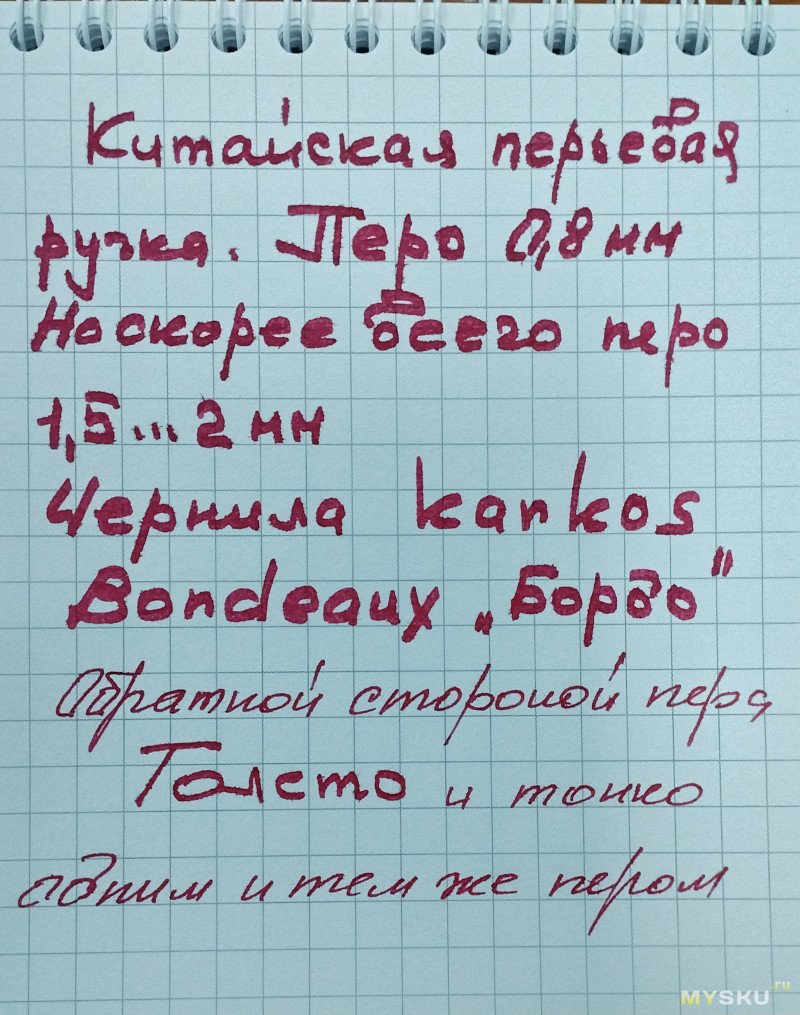 Китайская перьевая
ручка. Перо 0,8 мм
Но скорее всего перо
1,5...2 мм
Чернила kankos
Bondeaux „Бордо"
Обратной стороной пера
Толсто и тонко
одним и тем же пером
MYSKU.ru